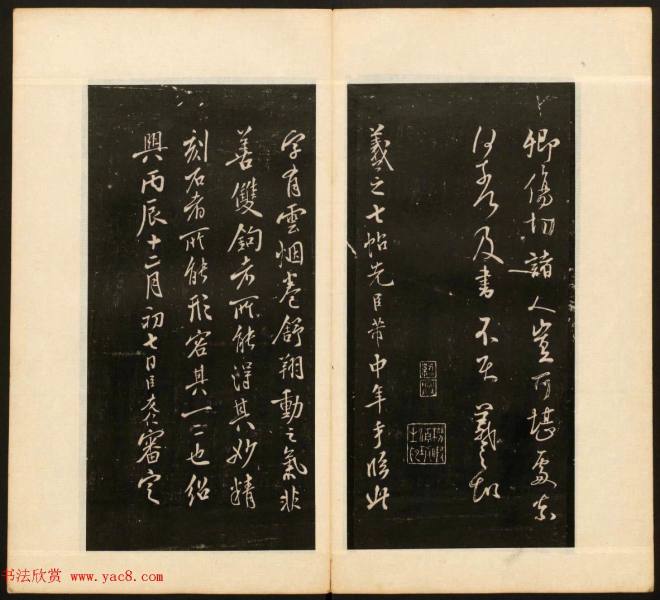 卿傷切諸人豈可堪處奈
及書羲之頓
羲之七帖先臣芾中年手臨此
字有雲烟卷舒翔動之氣非
善雙鉤者所能得其妙精
刻石者所能形容其一二也紹
興丙辰十二月初七日臣友仁審定
书法欣赏 www.yac8.com